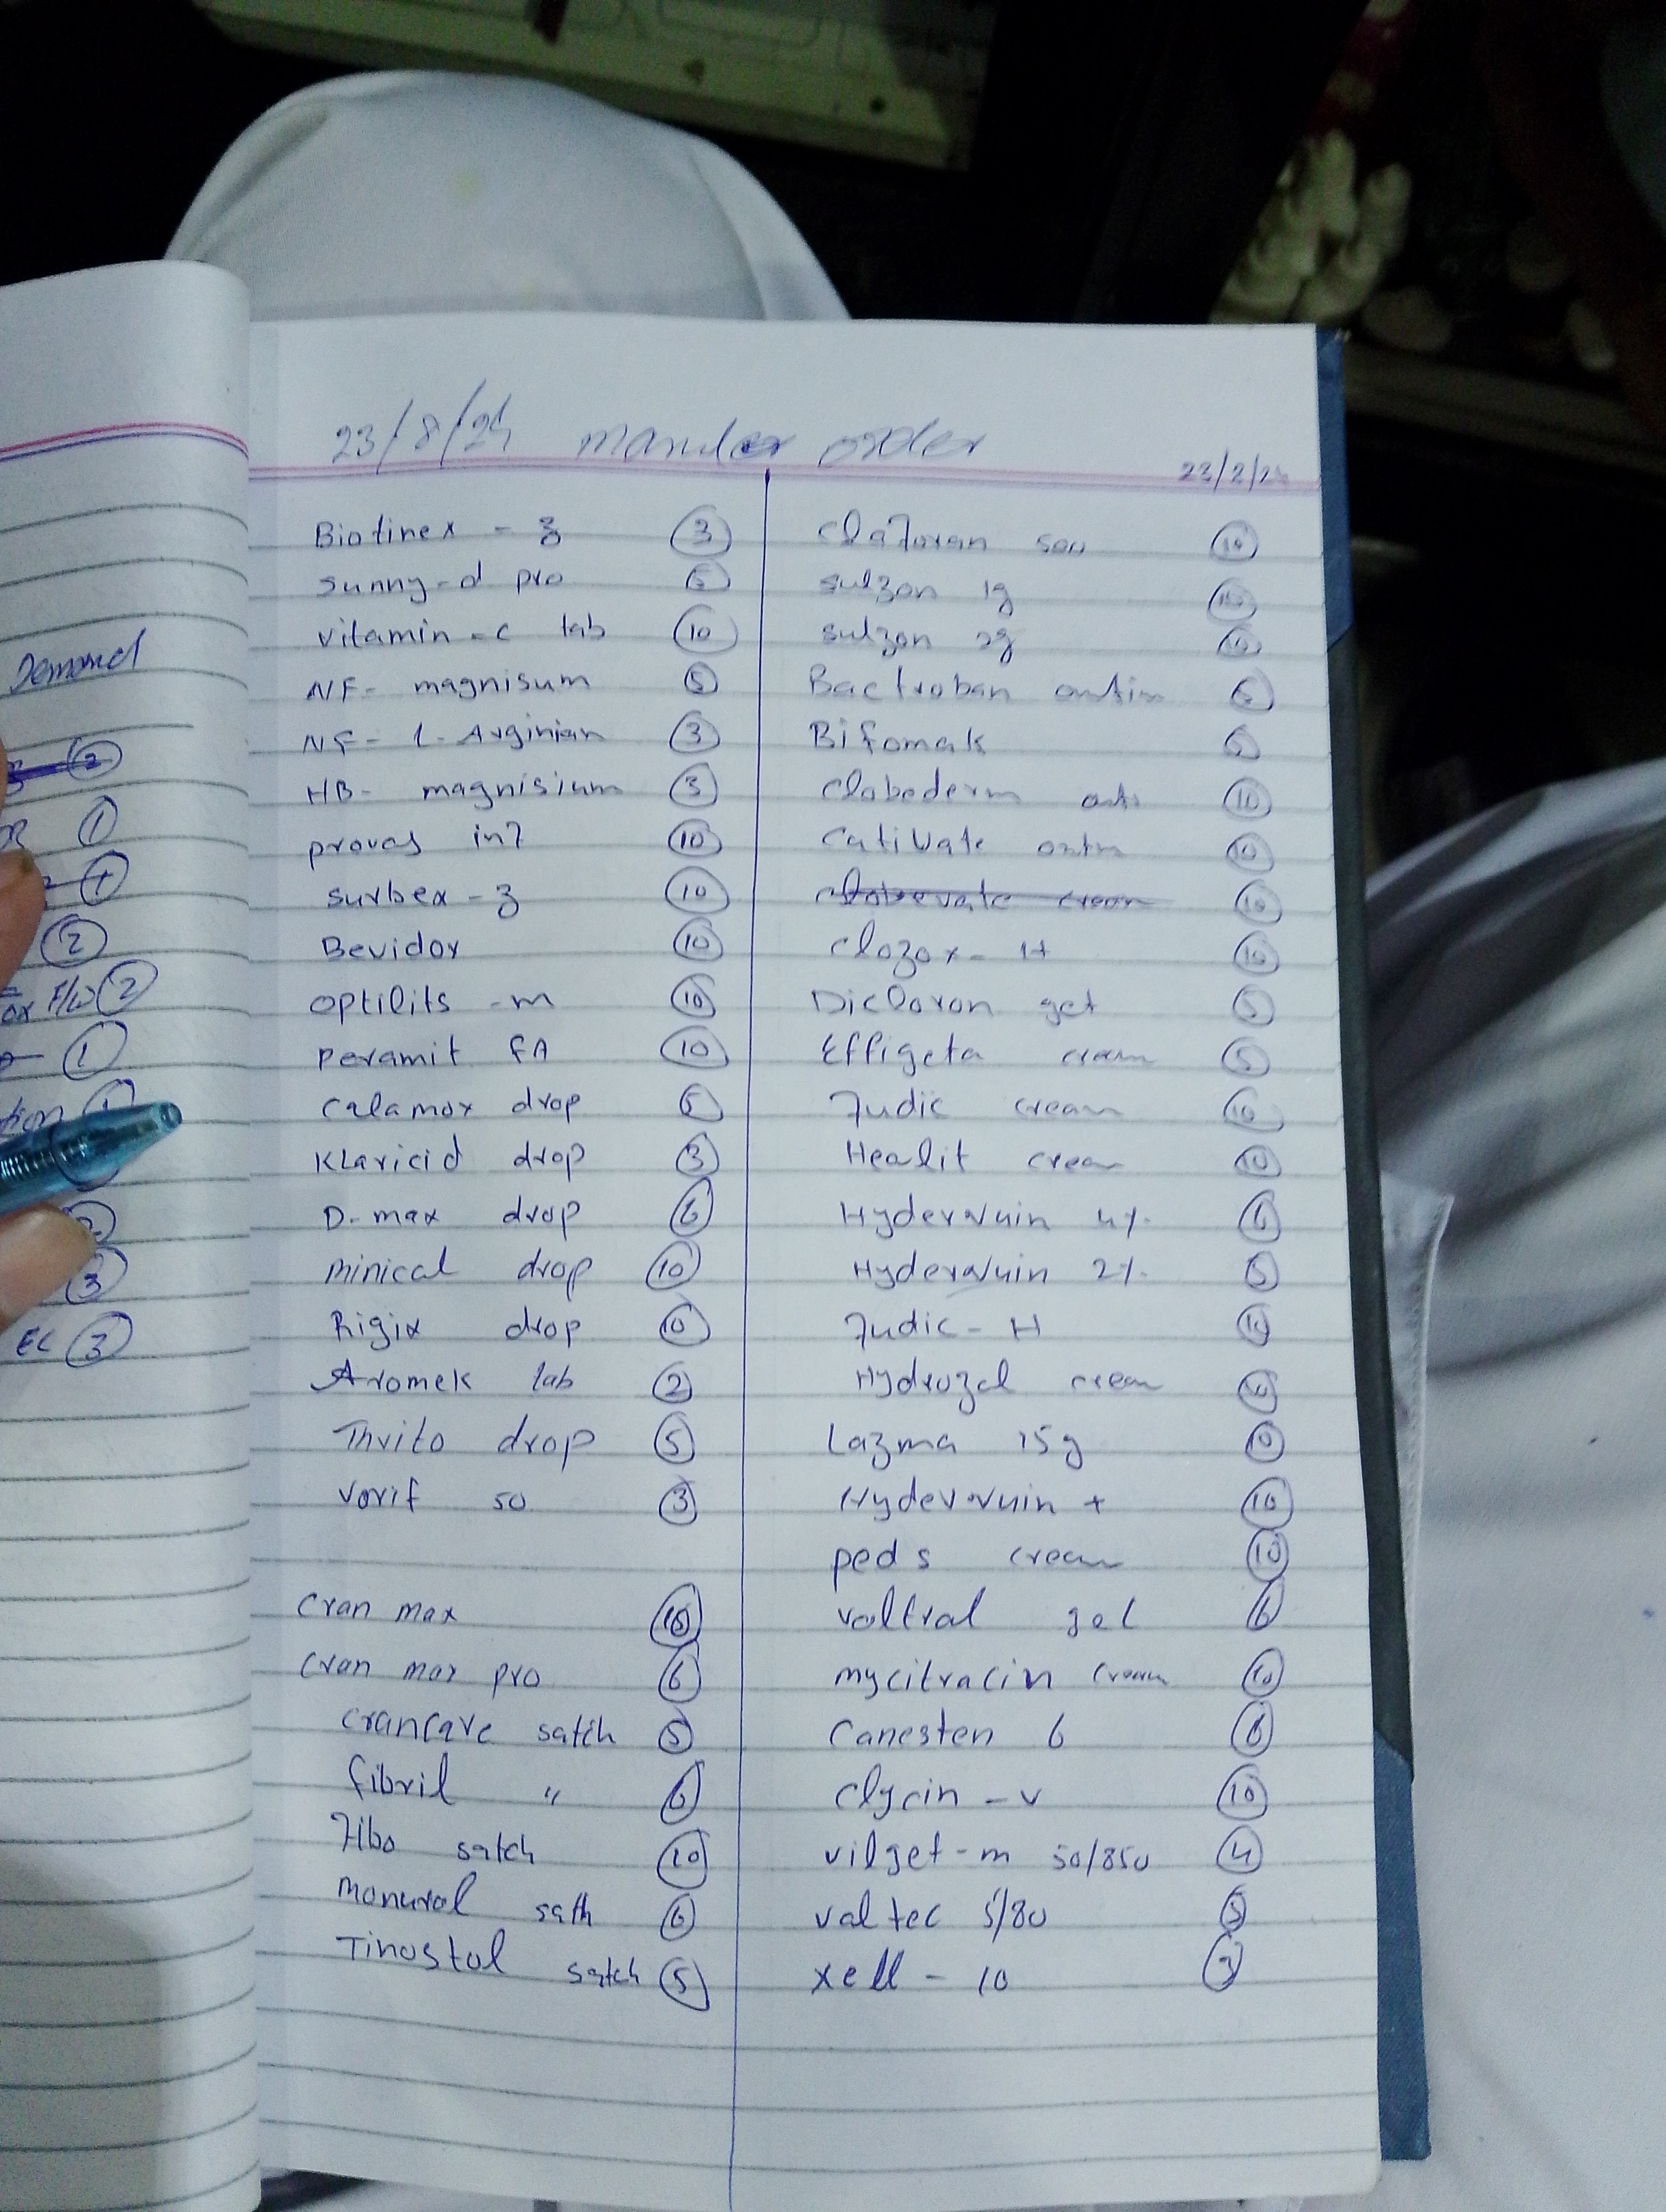 Demand
2
1
2
F/W 2
1
3
EC 3
23/8/24 order
23/2/24
Biotinex - z 3
sunny-d pro
vitamin-c tab 10
NF- magnisum 5
NF- L-Arginian 3
HB- magnisium 3
provas inj 10
surbex-z 10
Bevidox 10
optilits -m 10
peramit FA 10
calamox drop 5
Klaricid drop 3
D-max drop 6
minical drop 10
Rigix drop 10
Aromek tab 2
Thvito drop 5
vorif 50 3
cran max 10
cran max pro 6
crancare satch 5
fibril " 6
Fibo satch 10
monurol sath 6
Tinostol satch 5
claforan 500 10
sulzon 1g 10
sulzon 2g 10
Bactroban 5
Bifomak 5
clobederm 10
cutivate 10
clobevate cream 10
clozox-H 10
Dicloran gel 5
Effigeta cream 5
Fudic cream 10
Healit cream 10
Hyderquin 4% 6
Hyderquin 2% 5
Fudic-H 10
Hydrozol cream 10
Lazma 15g
Hyderquin + 10
peds cream 10
voltral gel 6
mycitracin cream 10
Canesten 6 6
clycin-v 10
vilget-m 50/850 4
valtec 5/80 5
xell - 10 3